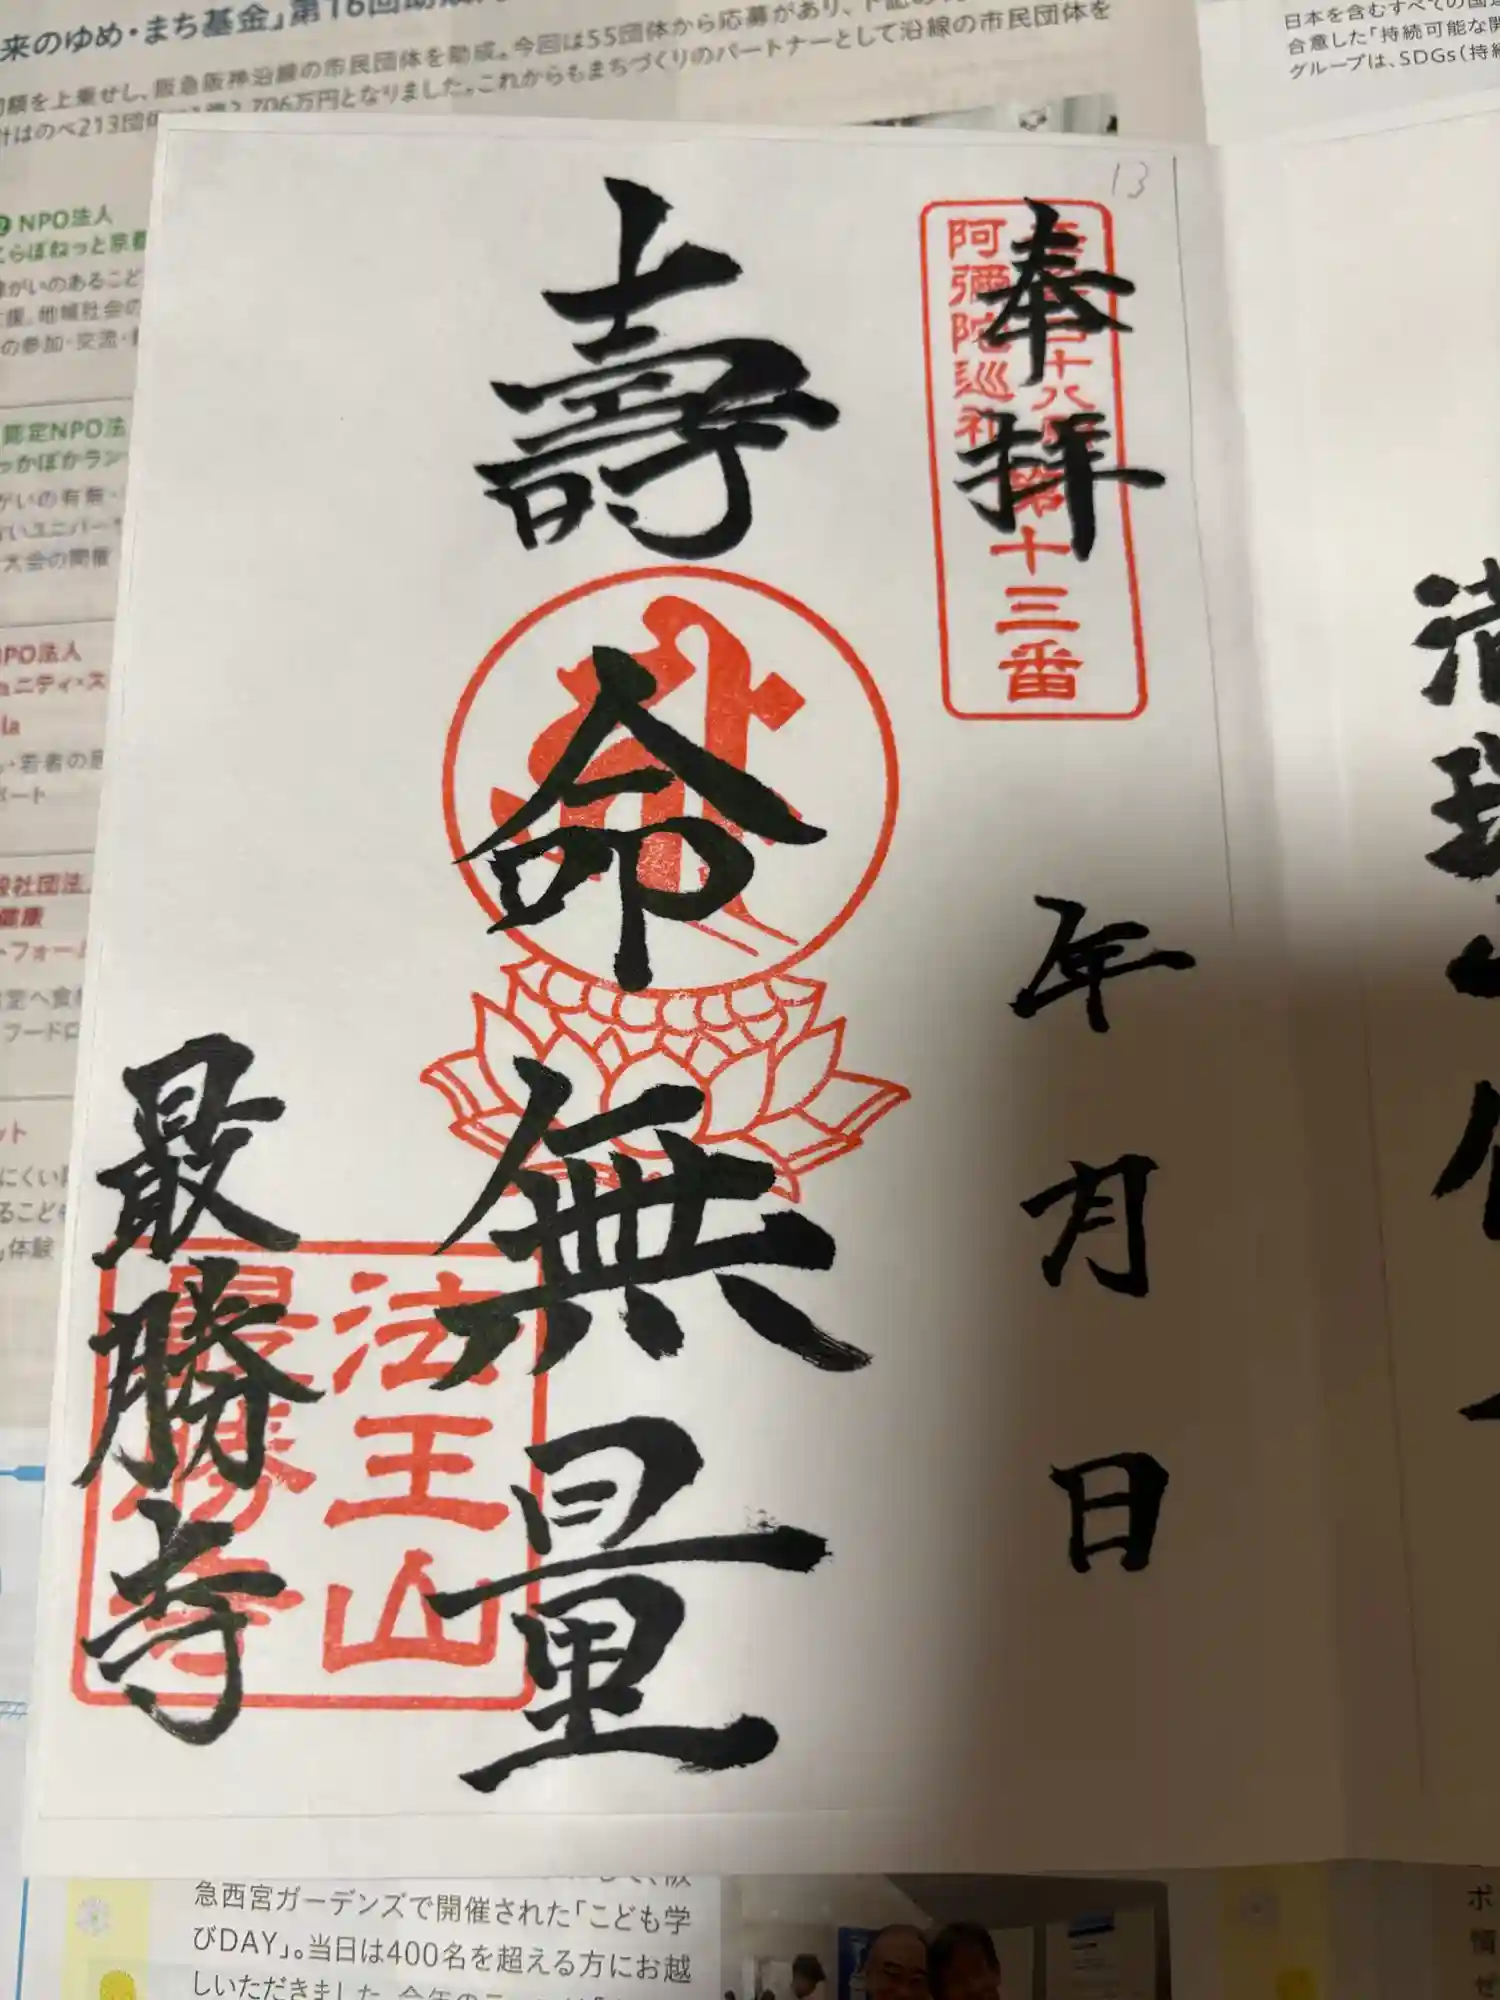 来のゆめ・まち基金」第16回助成
額を上乗せし、阪急阪神沿線の市民団体を助成。今回は55団体から応募があり、下記の
計はのべ213団体 2,706万円となりました。これからもまちづくりのパートナーとして沿線の市民団体を
日本を含むすべての国連
合意した「持続可能な開
グループは、SDGs(持続
13
奉拝
阿彌陀巡礼
十八願
第十三番
年
月
日
壽命無量
法王山
最勝寺
最勝寺
NPO法人
らぽねっと京都
がいのあるこど
援。地域社会の
の参加・交流・
認定NPO法
っかぽかラン
がいの有無・
いユニバー
大会の開催
NPO法人
ュニティ・ス
la
・若者の居
ポート
般社団法
健康
・フォーム
フードロ
ット
にくい
るこども
体験
急西宮ガーデンズで開催された「こども学
びDAY」。当日は400名を超える方にお越
しいただきました。今年の
ポ
情
ゼ